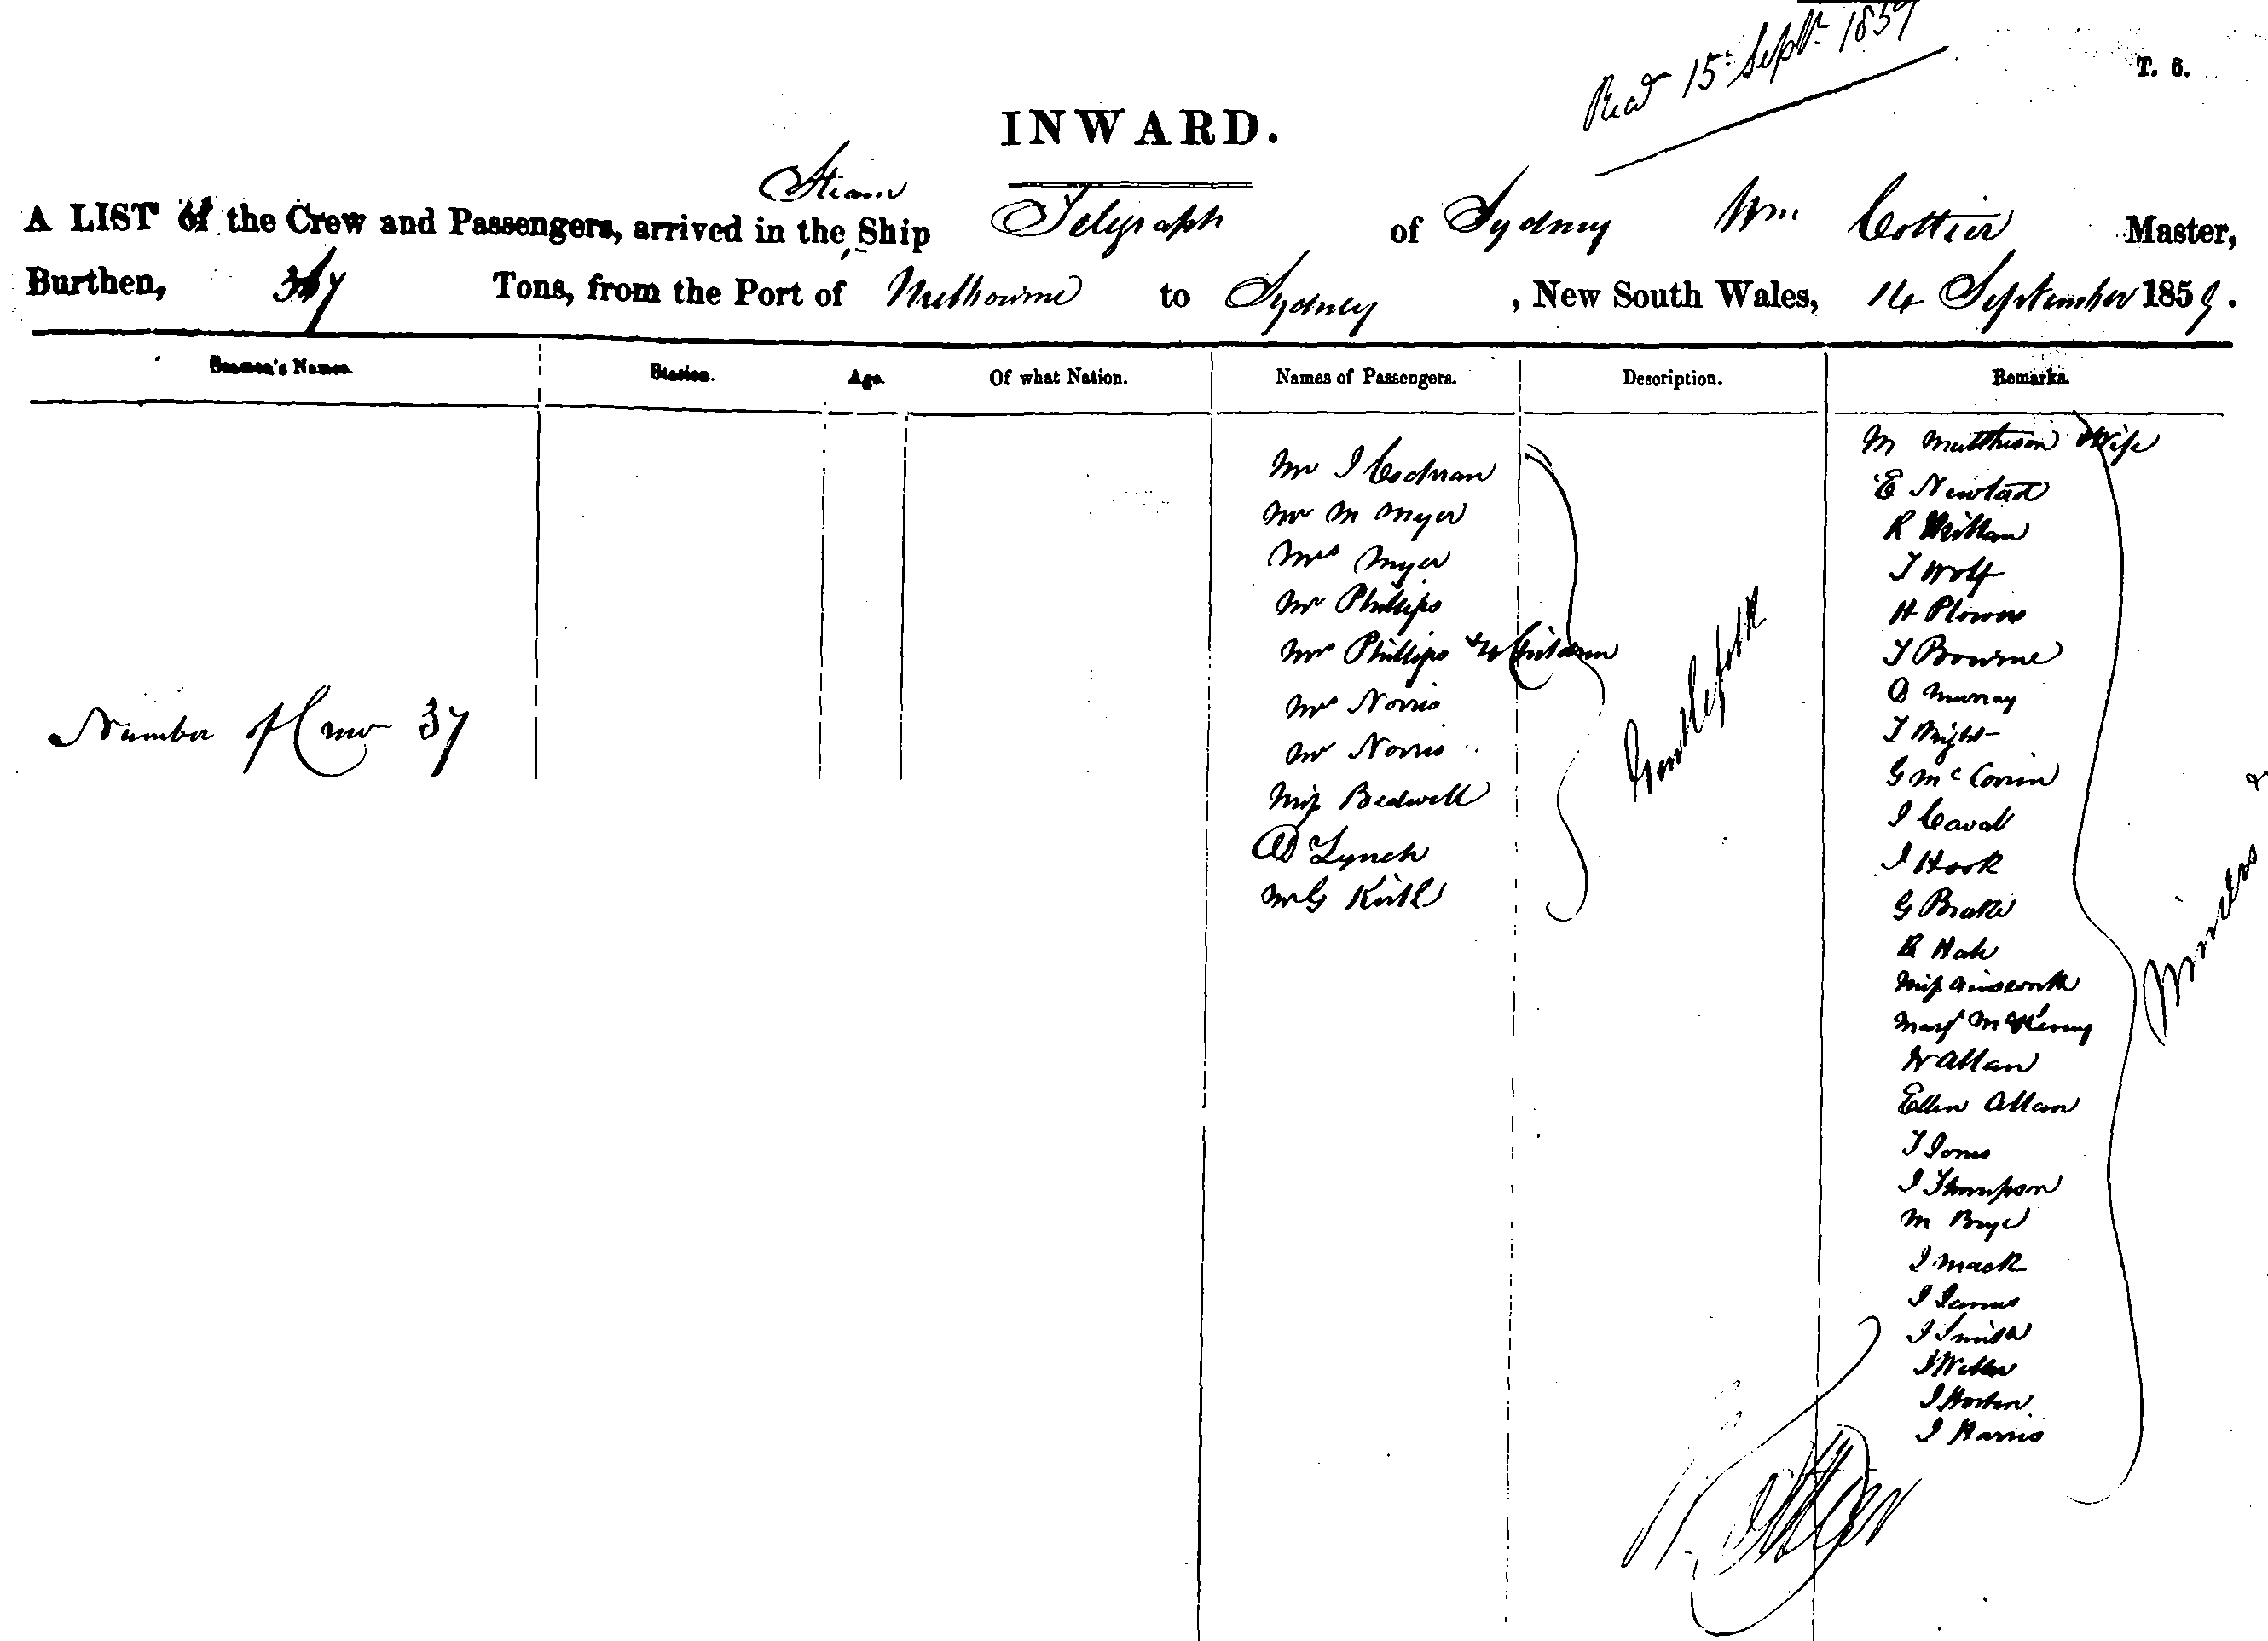 Recd 15th Septr 1859
T. 6.
INWARD.
Steam
A LIST of the Crew and Passengers, arrived in the Ship Telegraph of Sydney Wm Cottier Master,
Burthen, Tons, from the Port of Melbourne to Sydney, New South Wales, 14 September 1859.
Seamen's Names. Station. Age. Of what Nation. Names of Passengers. Description. Remarks.
Number of Crew 37
Mr J Cochran
Mr M Myer
Mrs Myer
Mr Phillips
Mrs Phillips Children
Mrs Norris
Mr Norris
Miss Bedwell
Lynch
Mr G
Gentlefolk
M Matthison & Wife
E
R
T Wolf
H Plowers
T Bourne
Murray
T Wright
G
J
J Hook
G Brake
R Hale
Miss Ainsworth
Mary
W Allan
Ellen Allan
T Jones
J Thompson
M
J Mack
J James
J Smith
J
J Horten
J Harris
Miners &